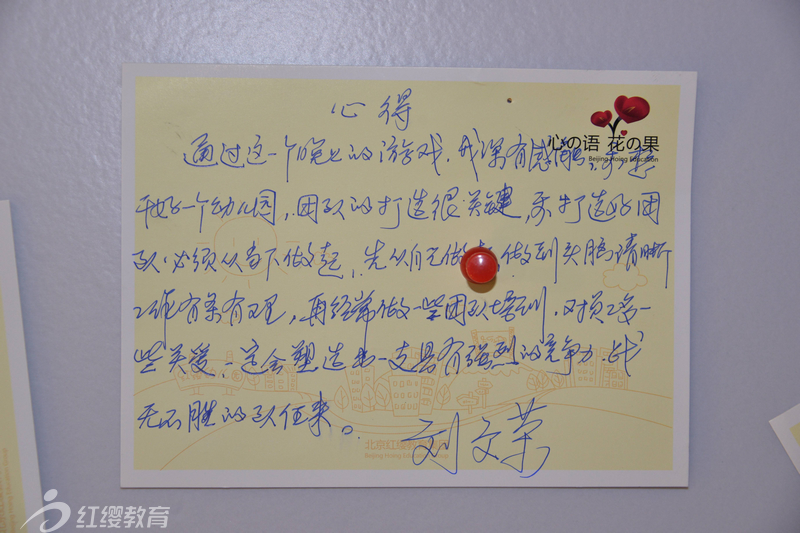 心得
心の语 花の果
Beijing Hoing Education
通过这一个晚上的游戏,我深有感触,要想
干好一个幼儿园,团队的打造很关键,要打造好团
队必须从当下做起,先从自己做 做到头脑清晰
工作有条有理,再经常做一些团队培训,对员工多一
些关爱,这会塑造出一支具有强烈的竞争力 战
无不胜的队伍来。
刘文荣
北京红缨教育
Beijing Hoing Education
红缨教育